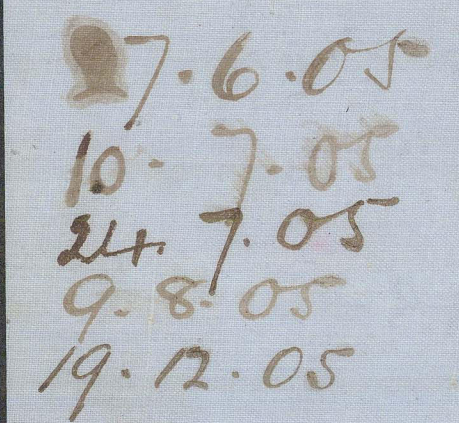 7.6.05
10. 7.05
24. 7.05
9.8.05
19.12.05